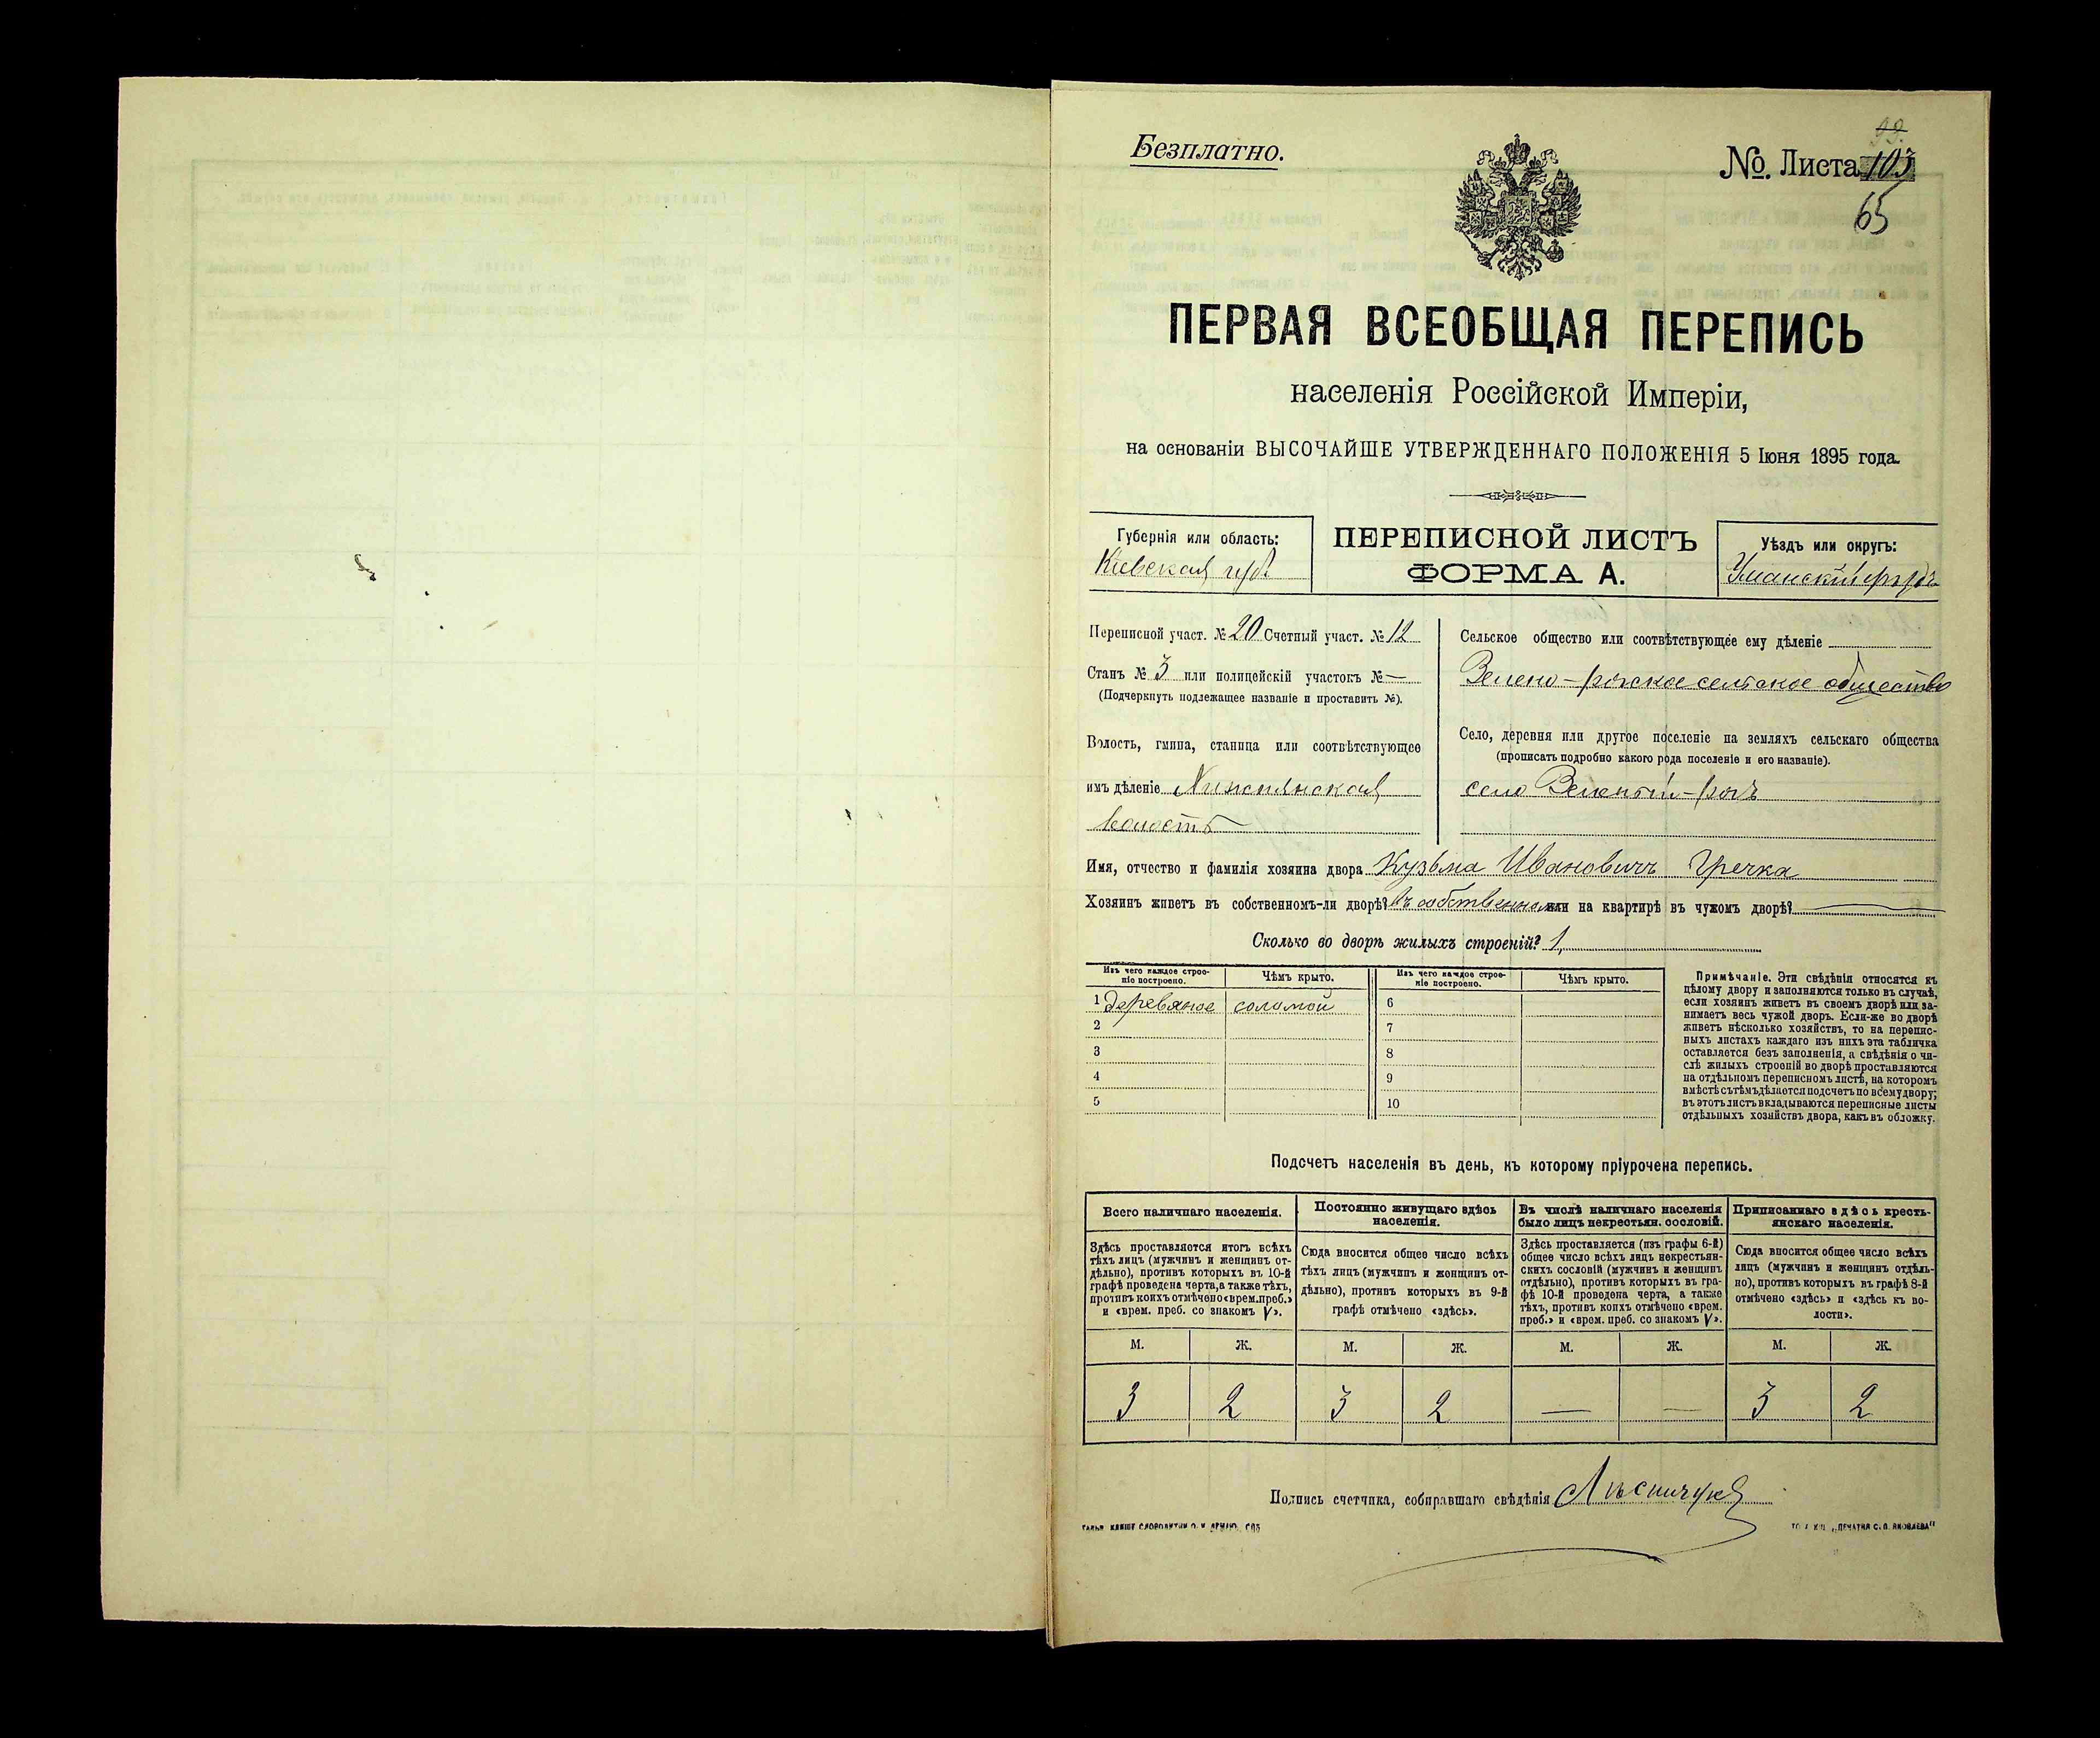 Безплатно.
99.
№. Листа 103
65
ПЕРВАЯ ВСЕОБЩАЯ ПЕРЕПИСЬ
населенія Россійской Имперіи,
на основаніи ВЫСОЧАЙШЕ УТВЕРЖДЕННАГО ПОЛОЖЕНІЯ 5 Іюня 1895 года.
Губернія или область:
Кіевская губ.
ПЕРЕПИСНОЙ ЛИСТЪ
ФОРМА А.
Уѣздъ или округъ:
Уманскій уѣздъ
Переписной участ. № 20 Счетный участ. № 12
Станъ № 3 или полицейскій участокъ № —
(Подчеркнуть подлежащее названіе и проставить №).
Волость, гмина, станица или соотвѣтствующее
имъ дѣленіе
волость
Сельское общество или соотвѣтствующее ему дѣленіе
Зелено-рогское сельское общество
Село, деревня или другое поселеніе на земляхъ сельскаго общества
(прописать подробно какого рода поселеніе и его названіе).
село Зеленый-рогъ
Имя, отчество и фамилія хозяина двора Кузьма Ивановичъ Гречка
Хозяинъ живетъ въ собственномъ-ли дворѣ? Въ собственномъ или на квартирѣ въ чужомъ дворѣ? —
Сколько во дворѣ жилыхъ строеній? 1,
Изъ чего каждое строеніе построено.
Чѣмъ крыто.
Изъ чего каждое строеніе построено.
Чѣмъ крыто.
1 деревяное соломой
2
3
4
5
6
7
8
9
10
Примѣчаніе. Эти свѣдѣнія относятся къ
цѣлому двору и заполняются только въ случаѣ,
если хозяинъ живетъ въ своемъ дворѣ или за-
нимаетъ весь чужой дворъ. Если-же во дворѣ
живетъ нѣсколько хозяйствъ, то на перепис-
ныхъ листахъ каждаго изъ нихъ эта табличка
оставляется безъ заполненія, а свѣдѣнія о чи-
слѣ жилыхъ строеній во дворѣ проставляются
на отдѣльномъ переписномъ листѣ, на которомъ
вмѣстѣ съ тѣмъ дѣлается подсчетъ по всему двору;
въ этотъ листъ вкладываются переписные листы
отдѣльныхъ хозяйствъ двора, какъ въ обложку.
Подсчетъ населенія въ день, къ которому пріурочена перепись.
Всего наличнаго населенія.
Здѣсь проставляется итогъ всѣхъ
тѣхъ лицъ (мужчинъ и женщинъ от-
дѣльно), противъ которыхъ въ 10-й
графѣ проведена черта, а также тѣхъ,
противъ коихъ отмѣчено «врем. преб.»
и «врем. преб. со знакомъ V».
Постоянно живущаго здѣсь
населенія.
Сюда вносится общее число всѣхъ
тѣхъ лицъ (мужчинъ и женщинъ от-
дѣльно), противъ которыхъ въ 9-й
графѣ отмѣчено «здѣсь».
Въ числѣ наличнаго населенія
было лицъ некрестьян. сословій.
Здѣсь проставляется (изъ графы 6-й)
общее число всѣхъ лицъ некрестьян-
скихъ сословій (мужчинъ и женщинъ
отдѣльно), противъ которыхъ въ гра-
фѣ 10-й проведена черта, а также
тѣхъ, противъ коихъ отмѣчено «врем.
преб.» и «врем. преб. со знакомъ V».
Приписаннаго здѣсь кресть-
янскаго населенія.
Сюда вносится общее число всѣхъ
лицъ (мужчинъ и женщинъ отдѣль-
но), противъ которыхъ въ графѣ 8-й
отмѣчено «здѣсь» и «здѣсь къ во-
лости».
М. Ж. М. Ж. М. Ж. М. Ж.
3 2 3 2 — — 3 2
Подпись счетчика, собиравшаго свѣдѣнія Лѣсничукъ